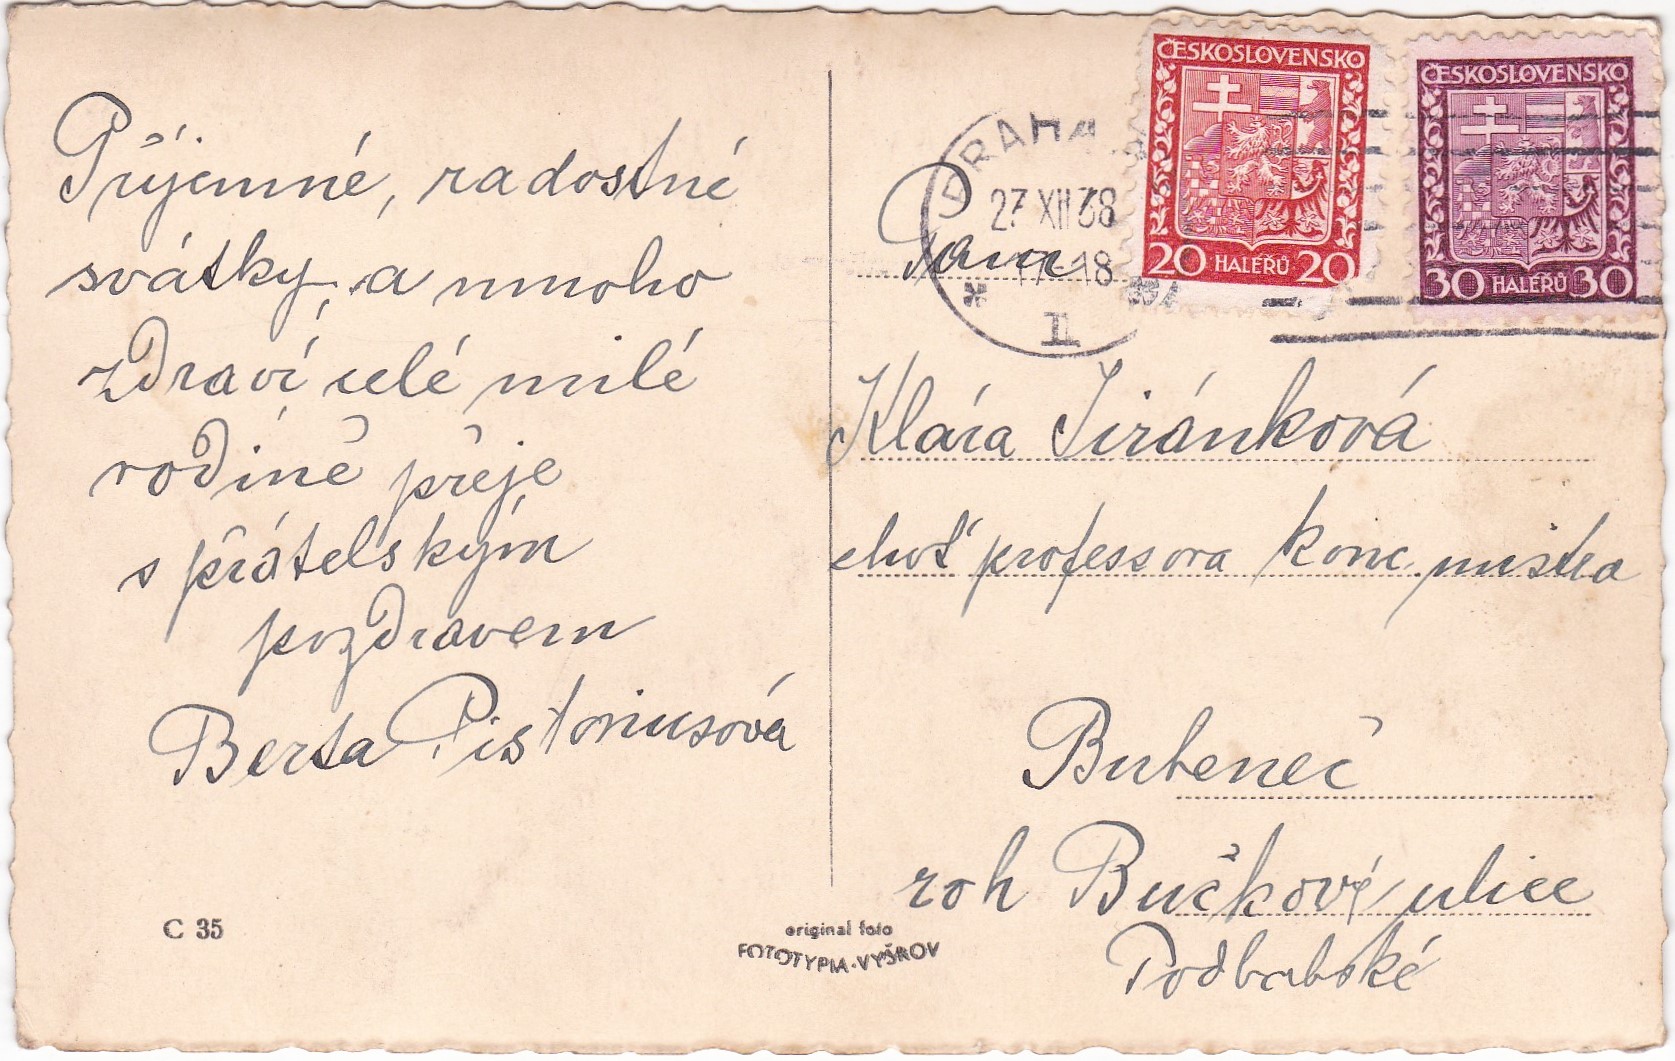 Příjemné, radostné
svátky, a mnoho
zdraví celé milé
rodině přeje
s přátelským
pozdravem
Berta Pistoriusová
C 35
original foto
FOTOTYPIA-VYŠKOV
ČESKOSLOVENSKO
20 HALÉŘŮ 20
ČESKOSLOVENSKO
30 HALÉŘŮ 30
PRAHA
27 XII 38
17-18
II
Paní
Klára Jiránková
choť professora konc. mistra
Bubeneč
roh Bučkové ulice
Podbabské